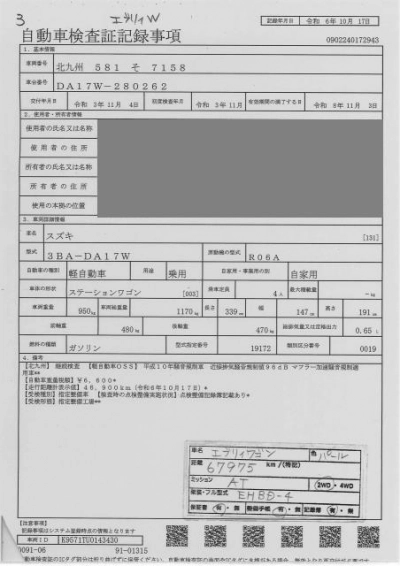 3
エブリィW
記録年月日 令和 6年10月 17日
自動車検査証記録事項
0902240172943
1. 基本情報
車両番号 北九州 581 そ 7158
車台番号 DA17W-280262
交付年月日 令和 3年11月 4日 初度検査年月 令和 3年11月 有効期間の満了する日 令和 8年11月 3日
2. 使用者・所有者情報
使用者の氏名又は名称
使用者の住所
所有者の氏名又は名称
所有者の住所
使用の本拠の位置
3. 車両詳細情報
車名 スズキ [131]
型式 3BA-DA17W 原動機の型式 R06A
自動車の種別 軽自動車 用途 乗用 自家用・事業用の別 自家用
車体の形状 ステーションワゴン [003] 乗車定員 4人 最大積載量 -kg
車両重量 950kg 車両総重量 1170kg 長さ 339cm 幅 147cm 高さ 191cm
前軸重 480kg 後軸重 470kg 総排気量又は定格出力 0.65L
燃料の種類 ガソリン 型式指定番号 19172 類別区分番号 0019
4. 備考
【北九州】 継続検査 【軽自動車OSS】 平成10年騒音規制車 近接排気騒音規制値96dB マフラー加速騒音規制適
用車**
【自動車重量税額】¥6,600*
【走行距離計表示値】48,900km(令和6年10月17日)*
【受検種別】指定整備車 【検査時の点検整備実施状況】点検整備記録簿記載あり*
【受検形態】指定整備工場**
車名 エブリィワゴン 色 パール
距離 67975 km/(特記)
ミッション AT 2WD・4WD
認定・フル型式 EHBD-4
保証書 有・無 整備手帳 有・無 記録簿 有・無
【注意事項】
記録事項はシステム登録時点の情報となります
車両ID K9G71TU0143430
0091-06 91-01315